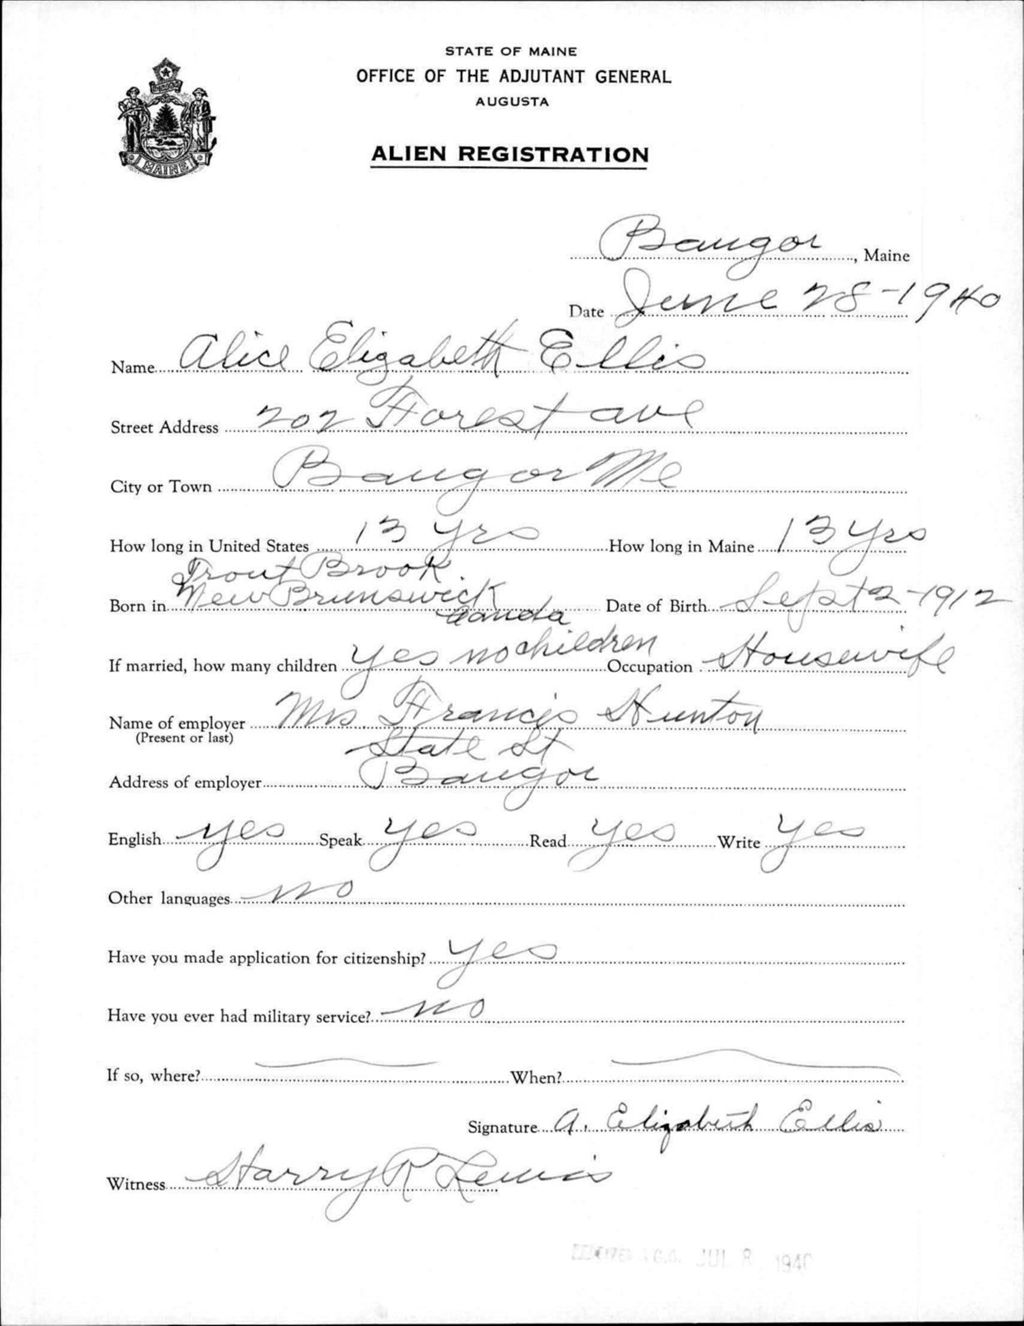 STATE OF MAINE
OFFICE OF THE ADJUTANT GENERAL
AUGUSTA
ALIEN REGISTRATION
MAINE
Bangor, Maine
Date June 28-1940
Name Alice Elizabeth Ellis
Street Address 202 Forest ave
City or Town Bangor Me
How long in United States 13 yrs How long in Maine 13 yrs
Trout Brook
Born in New Brunswick Date of Birth Sept 2-1912
Canda
If married, how many children yes no children Occupation Housewife
Name of employer Mrs Francis Hunton
(Present or last)
State St
Address of employer Bangor
English yes Speak yes Read yes Write yes
Other languages no
Have you made application for citizenship? yes
Have you ever had military service? no
If so, where? When?
Signature A. Elizabeth Ellis
Witness Harry R Lewis
JUL 8 1940